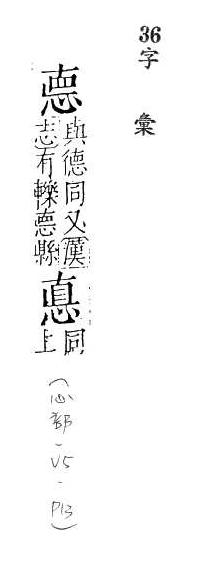 36
字彙
㥁
與德同又漢
志有轢㥁縣
悳
同
上
(心部-V5-P13)